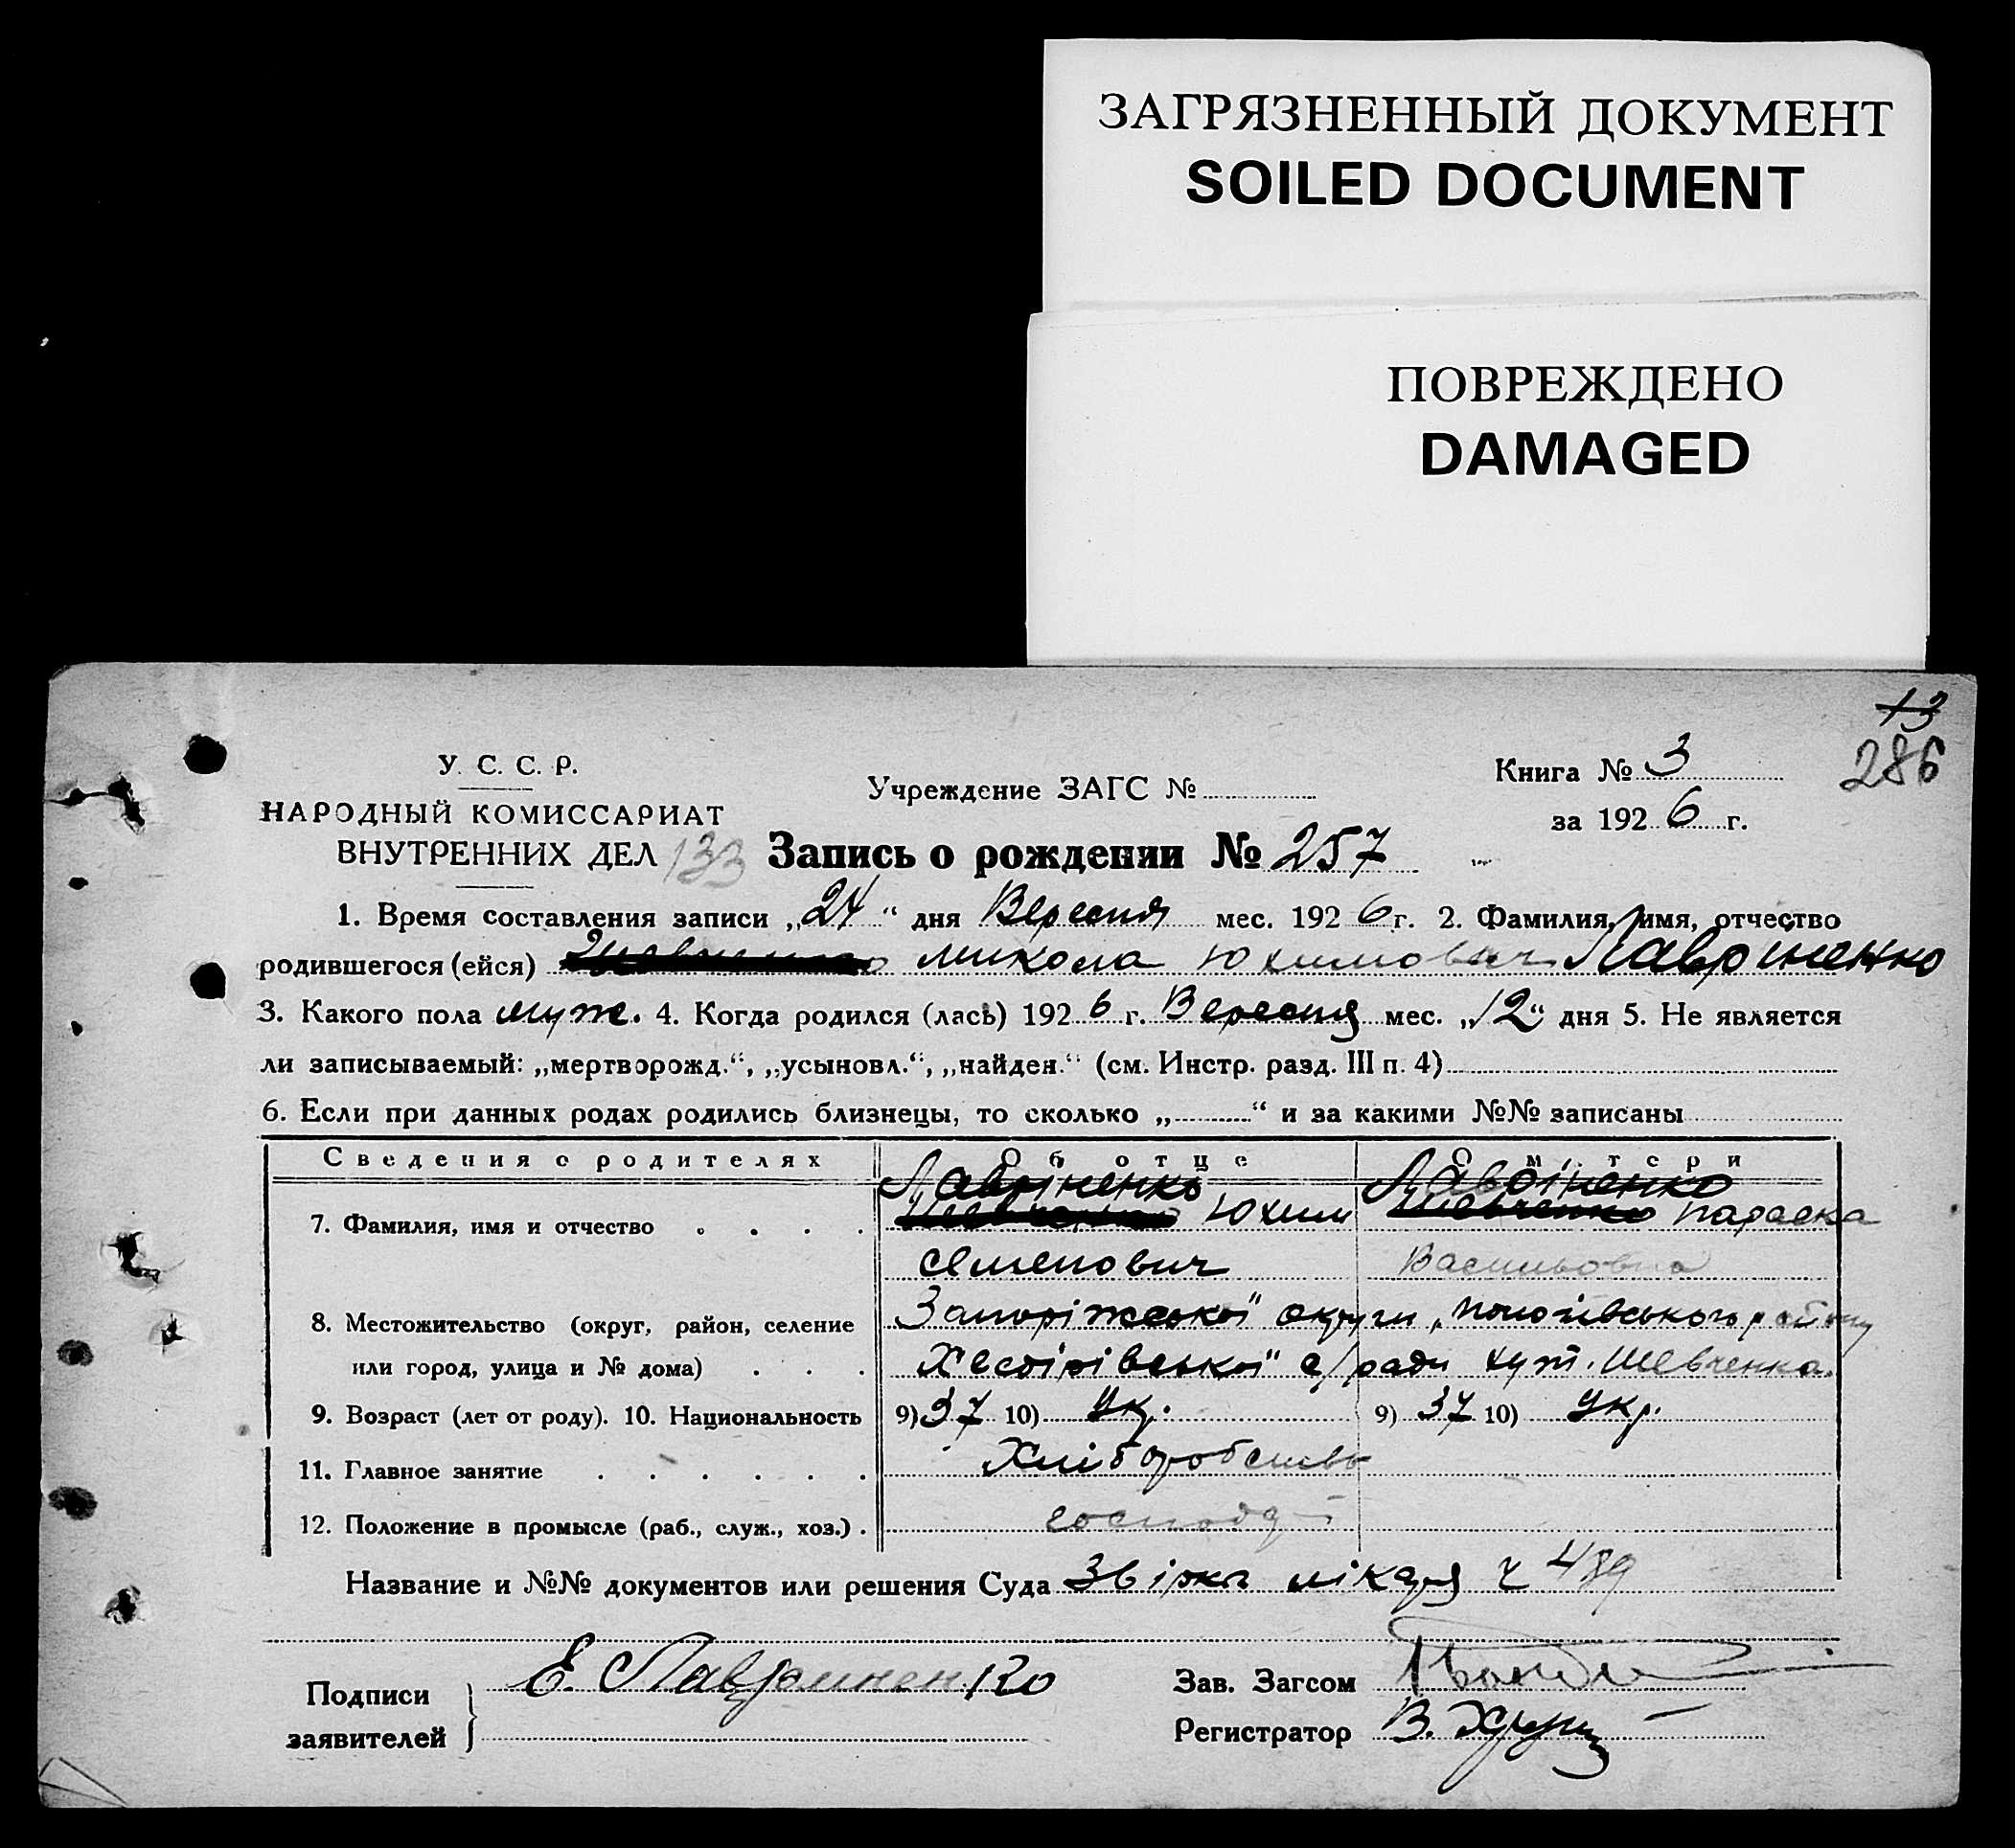 ЗАГРЯЗНЕННЫЙ ДОКУМЕНТ
SOILED DOCUMENT
ПОВРЕЖДЕНО
DAMAGED
13
286
У. С. С. Р.
НАРОДНЫЙ КОМИССАРИАТ
ВНУТРЕННИХ ДЕЛ 133
Учреждение ЗАГС №
Книга № 3
за 1926 г.
Запись о рождении № 257
1. Время составления записи „24“ дня Вересня мес. 1926 г. 2. Фамилия, имя, отчество
родившегося (ейся) Микола Юхимович Лавриненко
3. Какого пола муж. 4. Когда родился (лась) 1926 г. Вересня мес. „12“ дня 5. Не является
ли записываемый: „мертворожд.“, „усыновл.“, „найден.“ (см. Инстр. разд. III п. 4)
6. Если при данных родах родились близнецы, то сколько „ “ и за какими №№ записаны
Сведения о родителях Об отце О матери
Лавріненко Лавріненко
7. Фамилия, имя и отчество Юхим Шевченко Параска
Семенович Васильовна
8. Местожительство (округ, район, селение Запоріжської округи, Пологівського району
или город, улица и № дома) с/ради хут. Шевченка.
9. Возраст (лет от роду). 10. Национальность 9) 37 10) Ук. 9) 37 10) Укр.
11. Главное занятие Хліборобство
12. Положение в промысле (раб., служ., хоз.) господ
Название и №№ документов или решения Суда Звірка лікаря ч 489
Подписи заявителей Е. Лавриненко
Зав. Загсом
Регистратор В.